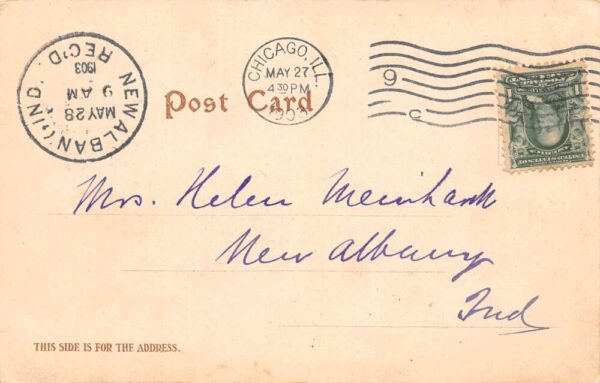 NEW ALBANY, IND.
MAY 28
9 AM
1903
REC'D.
CHICAGO, ILL.
MAY 27
4 30 PM
1903
9
C
Post Card
1
Mrs. Helen Meinhardt
New Albany
Ind
THIS SIDE IS FOR THE ADDRESS.